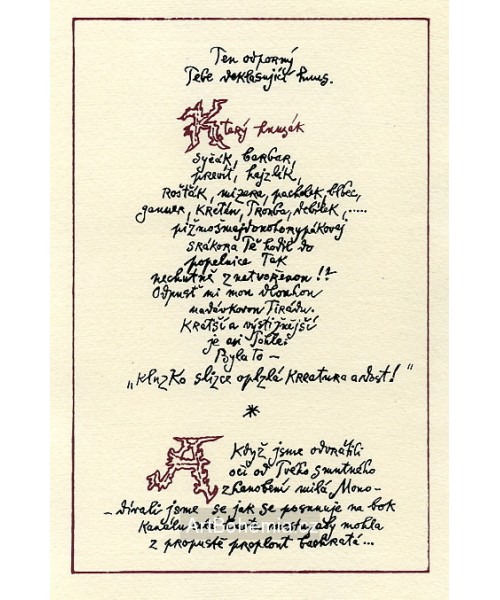 Ten odporný
Tebe deklasující hnus.
Který hnusák
syčák, barbar,
prevít, hajzlík,
Rošťák, mizera, pacholek, blbec,
gauner, Kretén, Trouba, debilek, .....
pižmošnajdonohorypákovej
srákora Tě hodil do
popelnice Tak
nechutně znetvořenou !?
Odpusť mi mou dlouhou
nadávkovou Tirádu.
Kratší a výstižnější
je asi Tohle:
Byla to –
„Kluzko slizce oplzlá Kreatura a dost!“
*
A Když jsme odvrátili
oči od Tvého smutného
zhanobení milá Mono-
- dívali jsme se jak se posunuje na bok
Kanálu aby mohla
z propustě proplout bachratá...
ArtBohemia.cz